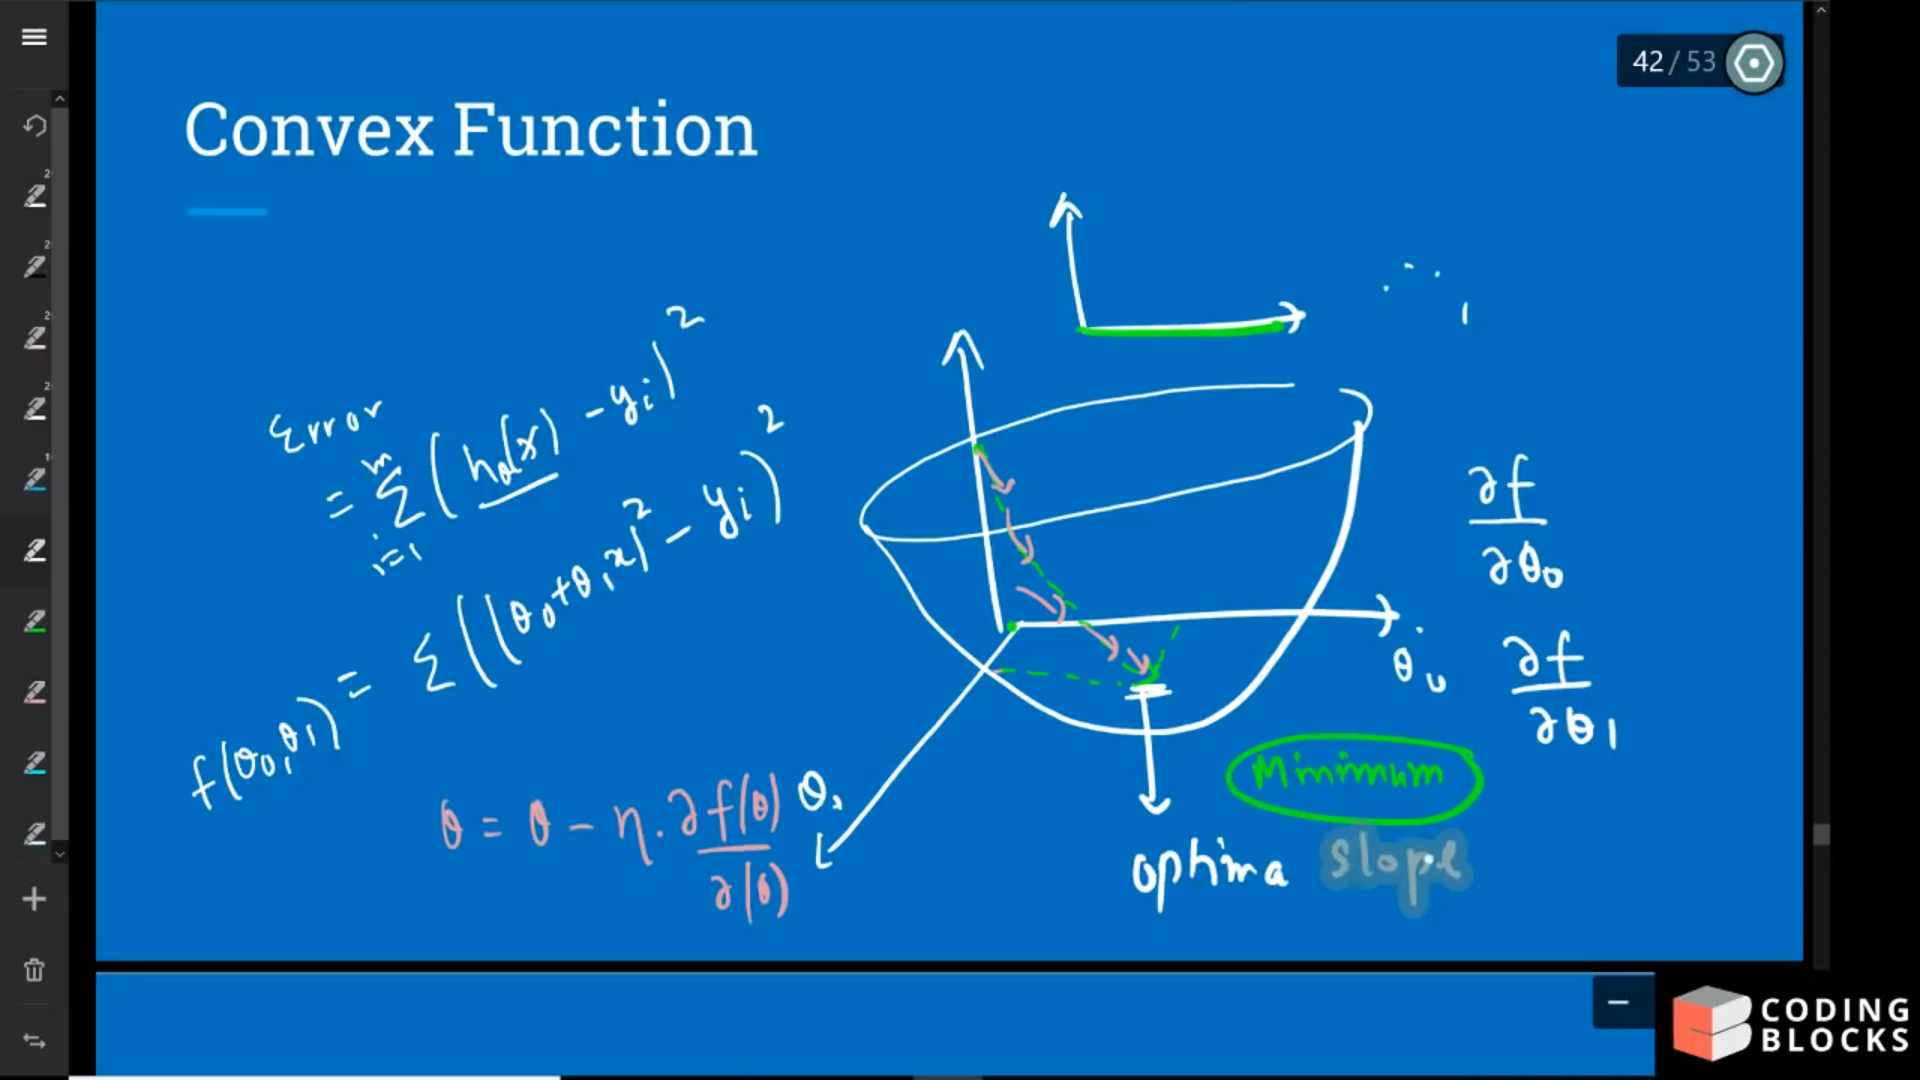 42 / 53
Convex Function
Error
= m Σ i=1 (hθ(x) - yi)²
f(θ0, θ1) = Σ((θ0+θ1x)² - yi)²
θ = θ - η. ∂f(θ)
∂(θ)
θ1
θ0
∂f
∂θ0
∂f
∂θ1
Minimum
optima
slope
CODING
BLOCKS